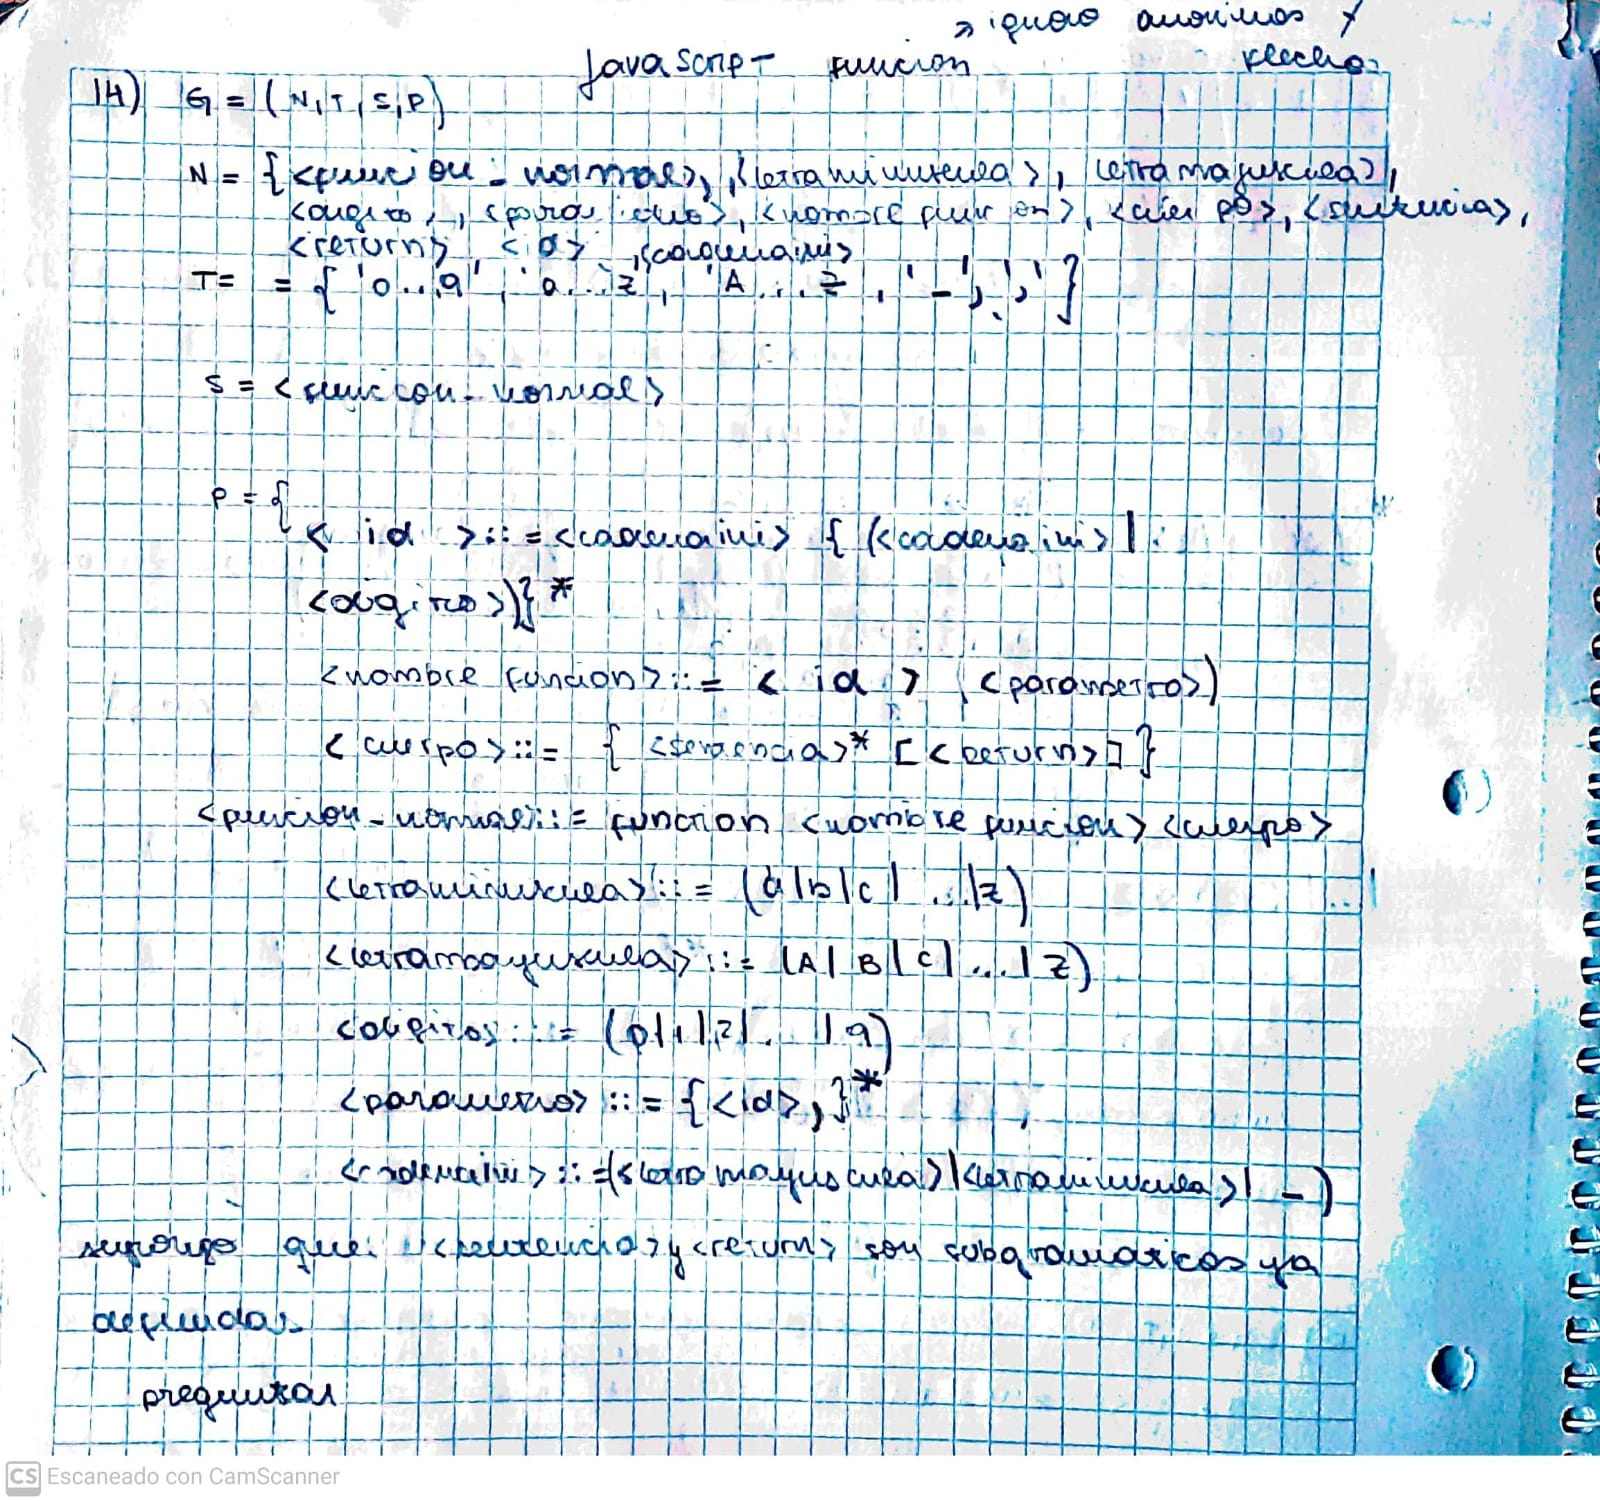 → ignoro anonimas y
JavaScript funcion flecha.
14) G = (N, T, S, P)
N = {<funcion_normal>, <letraminuscula>, letramayuscula>,
<digito>, <parametro>, <nombre funcion>, <cuerpo>, <sentencia>,
<return>, <id>, <cadenaini>
T= = { '0...9', 'a...z, 'A...z, '_', ',' }
S = <funccion_normal>
P = {
< id >::= <cadenaini> { (<cadenaini> |
<digito>)}*
<nombre funcion>::= < id > (<parametro>)
< cuerpo>::= { <sentencia>* [<return>] }
<funcion_normal>::= function <nombre funcion> <cuerpo>
<letraminuscula>::= (a|b|c| ...|z)
<letramayuscula>::= (A|B|C|...|Z)
<digitos::= (0|1|2|...|9)
<parametro> ::= {<id>,}*
<cadenaini> ::=(<letra mayuscula>|<letraminuscula>| _)
supongo que <sentencia> y <return> son subgramaticas ya
definidas
preguntar
CS Escaneado con CamScanner